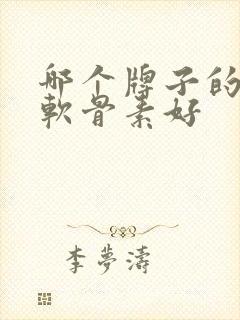 哪个牌子的
軟骨素好
李夢濤